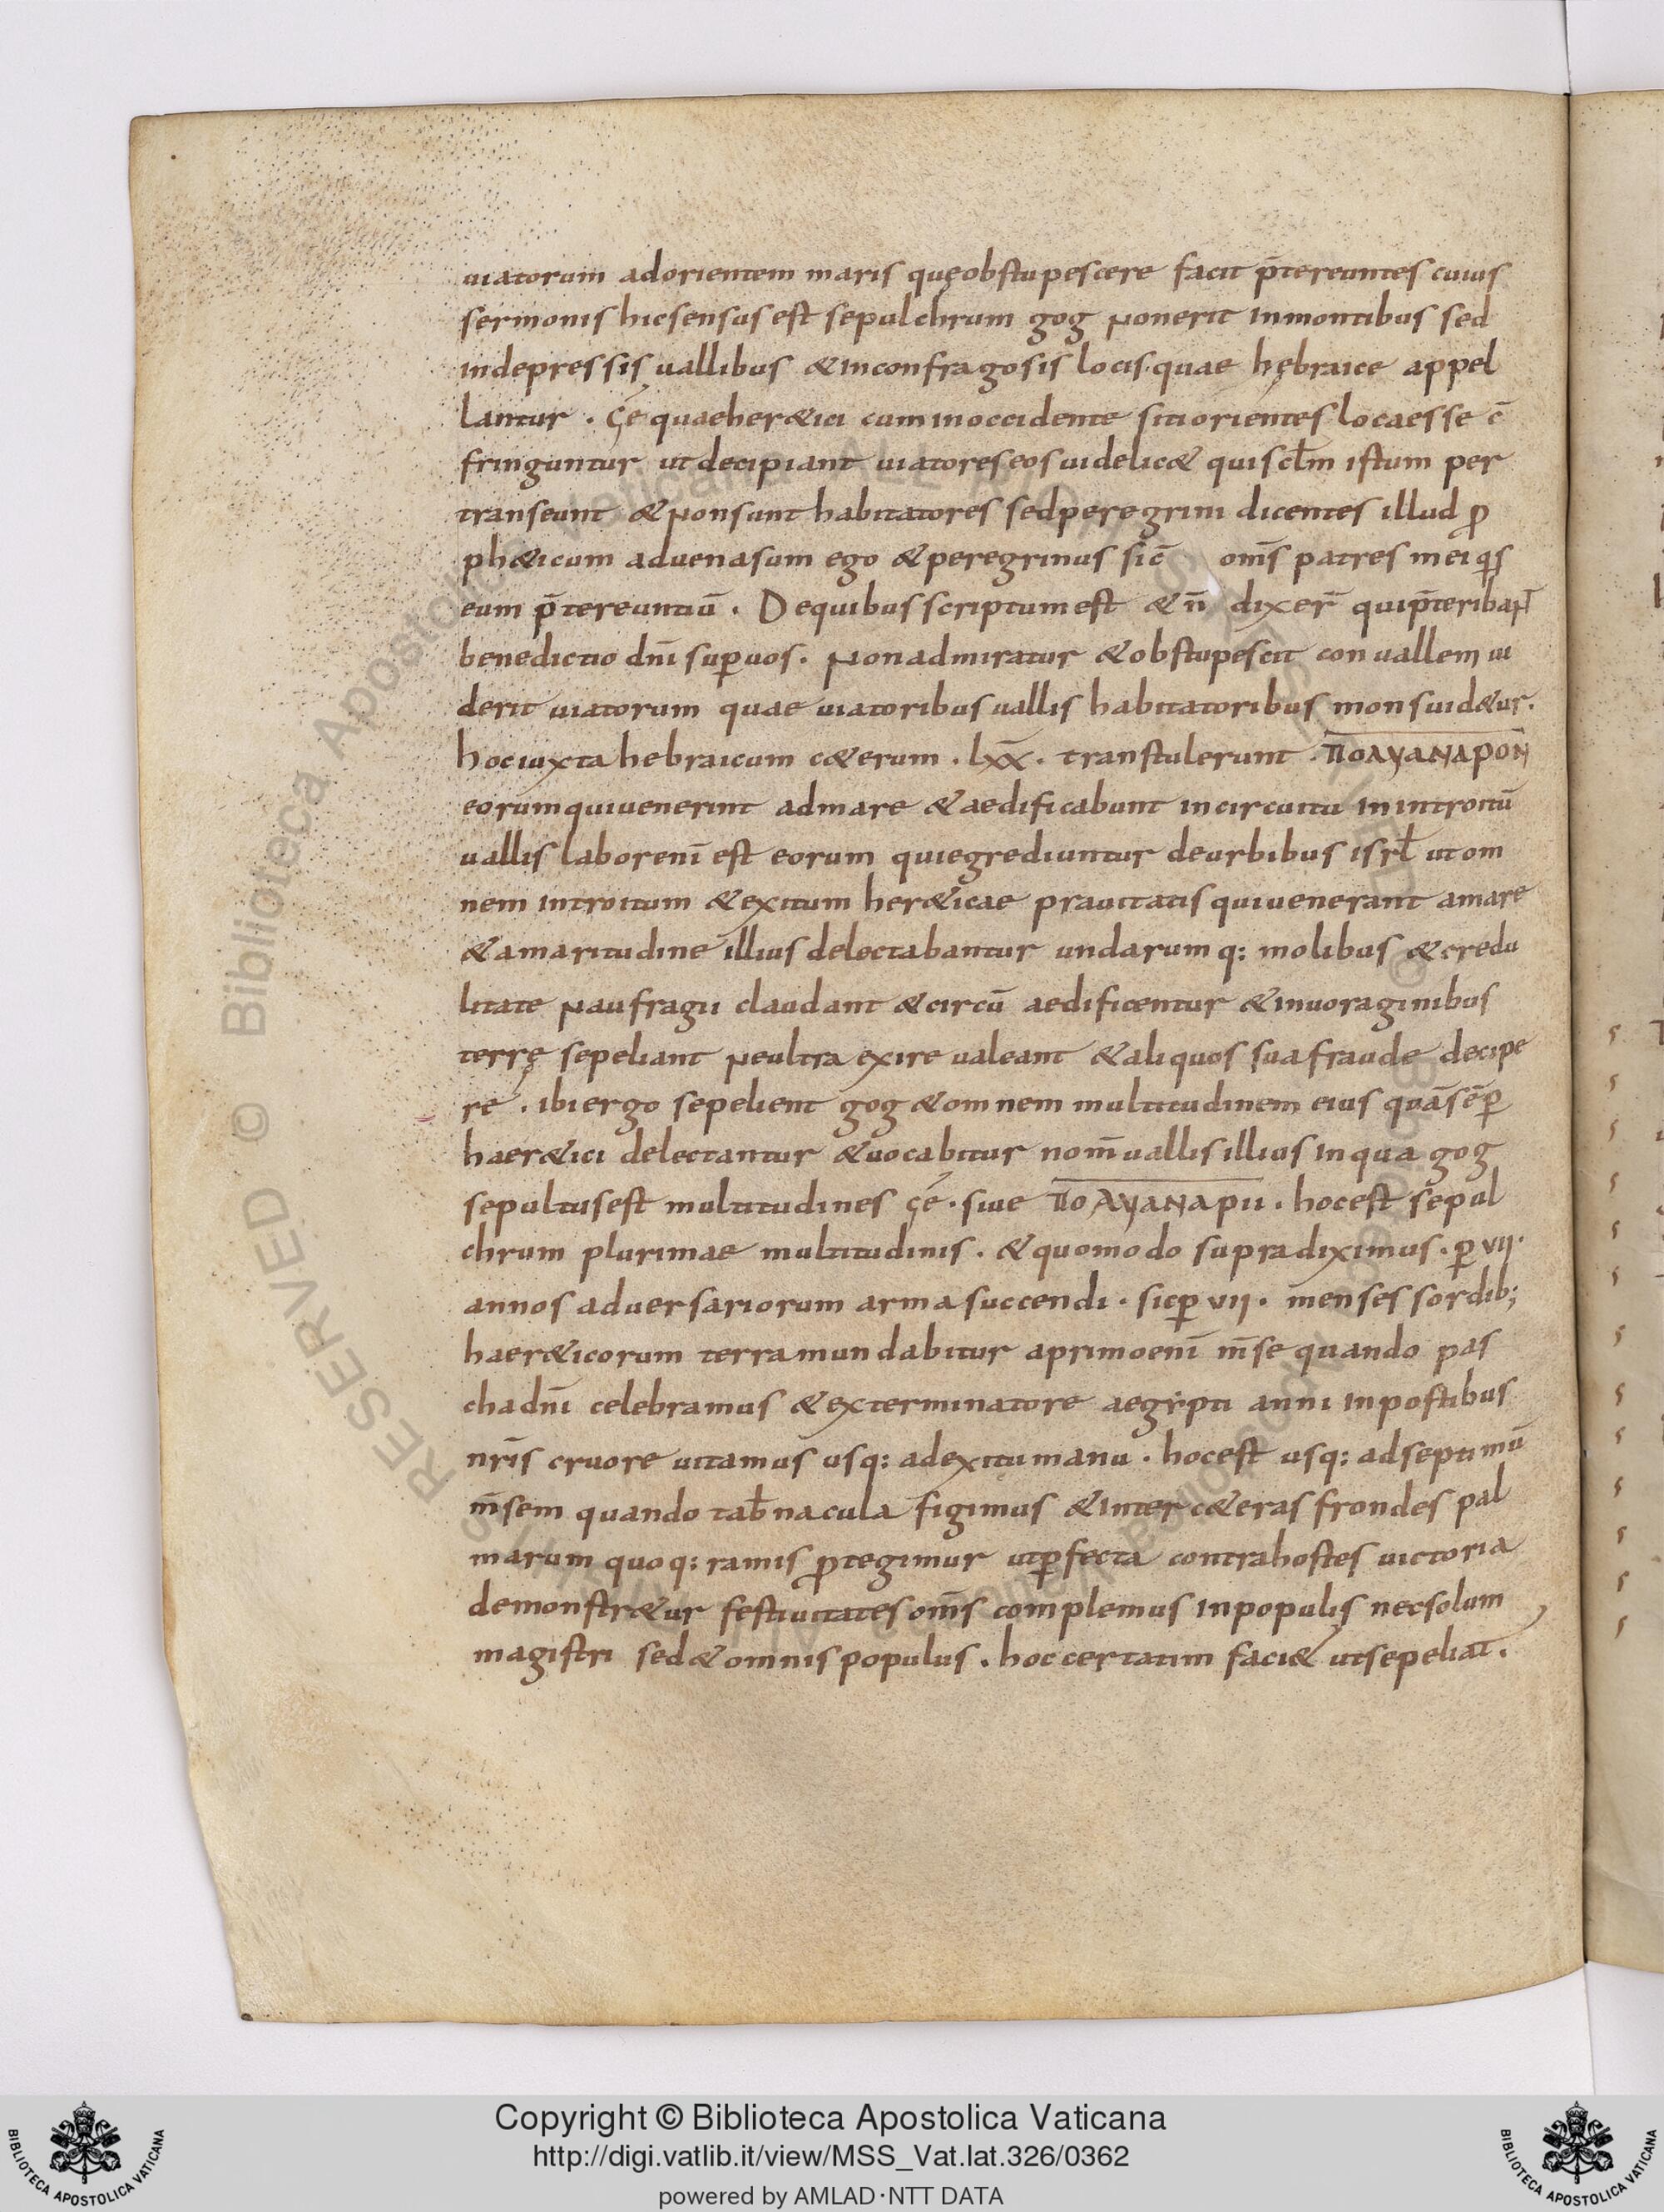 uiatorum adorientem maris quęobstupescere facit p̄tereuntes cuius
sermonis hicsensus est sepulchrum gog Nonerit inmontibus sed
indepressis uallibus &inconfragosis locis·quae hębraice appel
lantur · çé quaeher&ici cuminoccidente sitiorientes locaesse c̄
fringuntur ut decipiant uiatores eos uidelic& qui sc̄lm istum per
transeunt &Nonsunt habitatores sedperegrini dicentes illud ꝓ
ph&icum aduenasum ego &peregrinus sic̄ om̄s patres mei q̄s
eum p̄tereuntiū · Dequibus scriptumest &n̄ dixer̄ quip̄teribaN̄T
benedictio dn̄i suꝑuos · Nonadmiratur &obstupescit conuallem ui
derit uiatorum quae uiatoribus uallis habitatoribus monsuid&ur·
hociuxta hebraicum c&erum · lx̄x̄ · transtulerunt · ΠΟΛΥΑΝΑΡΟΝ
eorumquiuenerint admare &aedificabunt incircuitu inintroitū
uallis laboreni̅ est eorum quiegrediuntur deurbibus isrł ut om
nem introitum &exitum her&icae prauitatis quiuenerant amare
&amaritudine illius delectabantur undarumq: molibus &credu
litate Naufragii claudant &circū aedificentur &inuoraginibus
terrę sepeliant Neultra exire ualeant &aliquos suafraude decipe
re · ibiergo sepelient gog &omnem multitudinem eius quāsēꝑ
haer&ici delectantur &uocabitur nom̄uallis illius inqua gog
sepultusest multitudines çé · siue ΠΟΛΥΑΝΑΡΙΙ · hocest sepul
chrum plurimae multitudinis · &quomodo supradiximus · ꝑ vii·
annos aduersariorum arma succendi · sicꝑ vii · menses sordib;
haer&icorum terramundabitur aprimoeni̅ m̄se quando pas
chadn̄i celebramus &exterminatore aegẏpti anni inpostibus
nr̄is cruore uitamus usq: adexitumanu · hocest usq: adseptimū
m̄sem quando tab̄nacula figimus &inter c&eras frondes pal
marum quoq: ramis ꝓtegimur utꝑfecta contrahostes uictoria
demonstr&ur festiuitates om̄s complemus inpopulis necsolum
magistri sed&omnis populus · hoc certatim faci& utsepeliat̄ ·
Copyright © Biblioteca Apostolica Vaticana
http://digi.vatlib.it/view/MSS_Vat.lat.326/0362
powered by AMLAD·NTT DATA
BIBLIOTECA APOSTOLICA VATICANA
BIBLIOTECA APOSTOLICA VATICANA